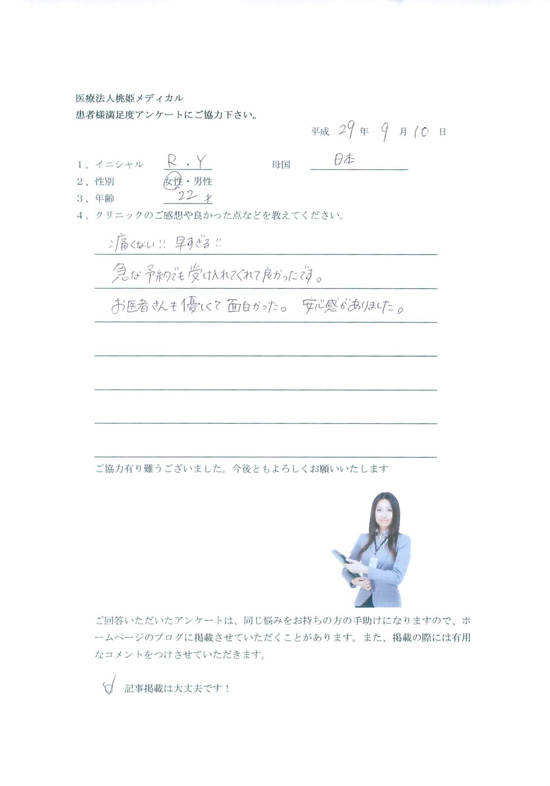 医療法人桃姫メディカル
患者様満足度アンケートにご協力下さい。
平成 29 年 9 月 10 日
1、イニシャル R.Y 母国 日本
2、性別 女性・男性
3、年齢 22 才
4、クリニックのご感想や良かった点などを教えてください。
痛くない!! 早すぎる!!
急な予約でも受け入れてくれて良かったです。
お医者さんも優しくて面白かった。 安心感がありました。
ご協力有り難うございました。今後ともよろしくお願いいたします
ご回答いただいたアンケートは、同じ悩みをお持ちの方の手助けになりますので、ホ
ームページのブログに掲載させていただくことがあります。また、掲載の際には有用
なコメントをつけさせていただきます。
記事掲載は大丈夫です！